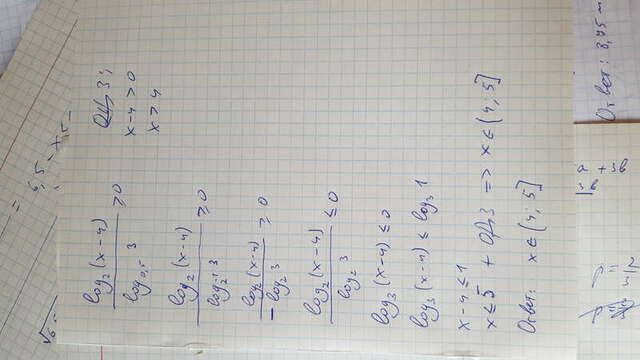 log₂(x-4) / log₀,₅ 3 ≥ 0
ОДЗ:
x-4 > 0
x > 4
log₂(x-4) / log₂⁻¹ 3 ≥ 0
log₂(x-4) / -log₂ 3 ≥ 0
log₂(x-4) / log₂ 3 ≤ 0
log₃(x-4) ≤ 0
log₃(x-4) ≤ log₃ 1
x-4 ≤ 1
x ≤ 5 + ОДЗ => x ∈ (4; 5]
Ответ: x ∈ (4; 5]
Ответ: 8,75